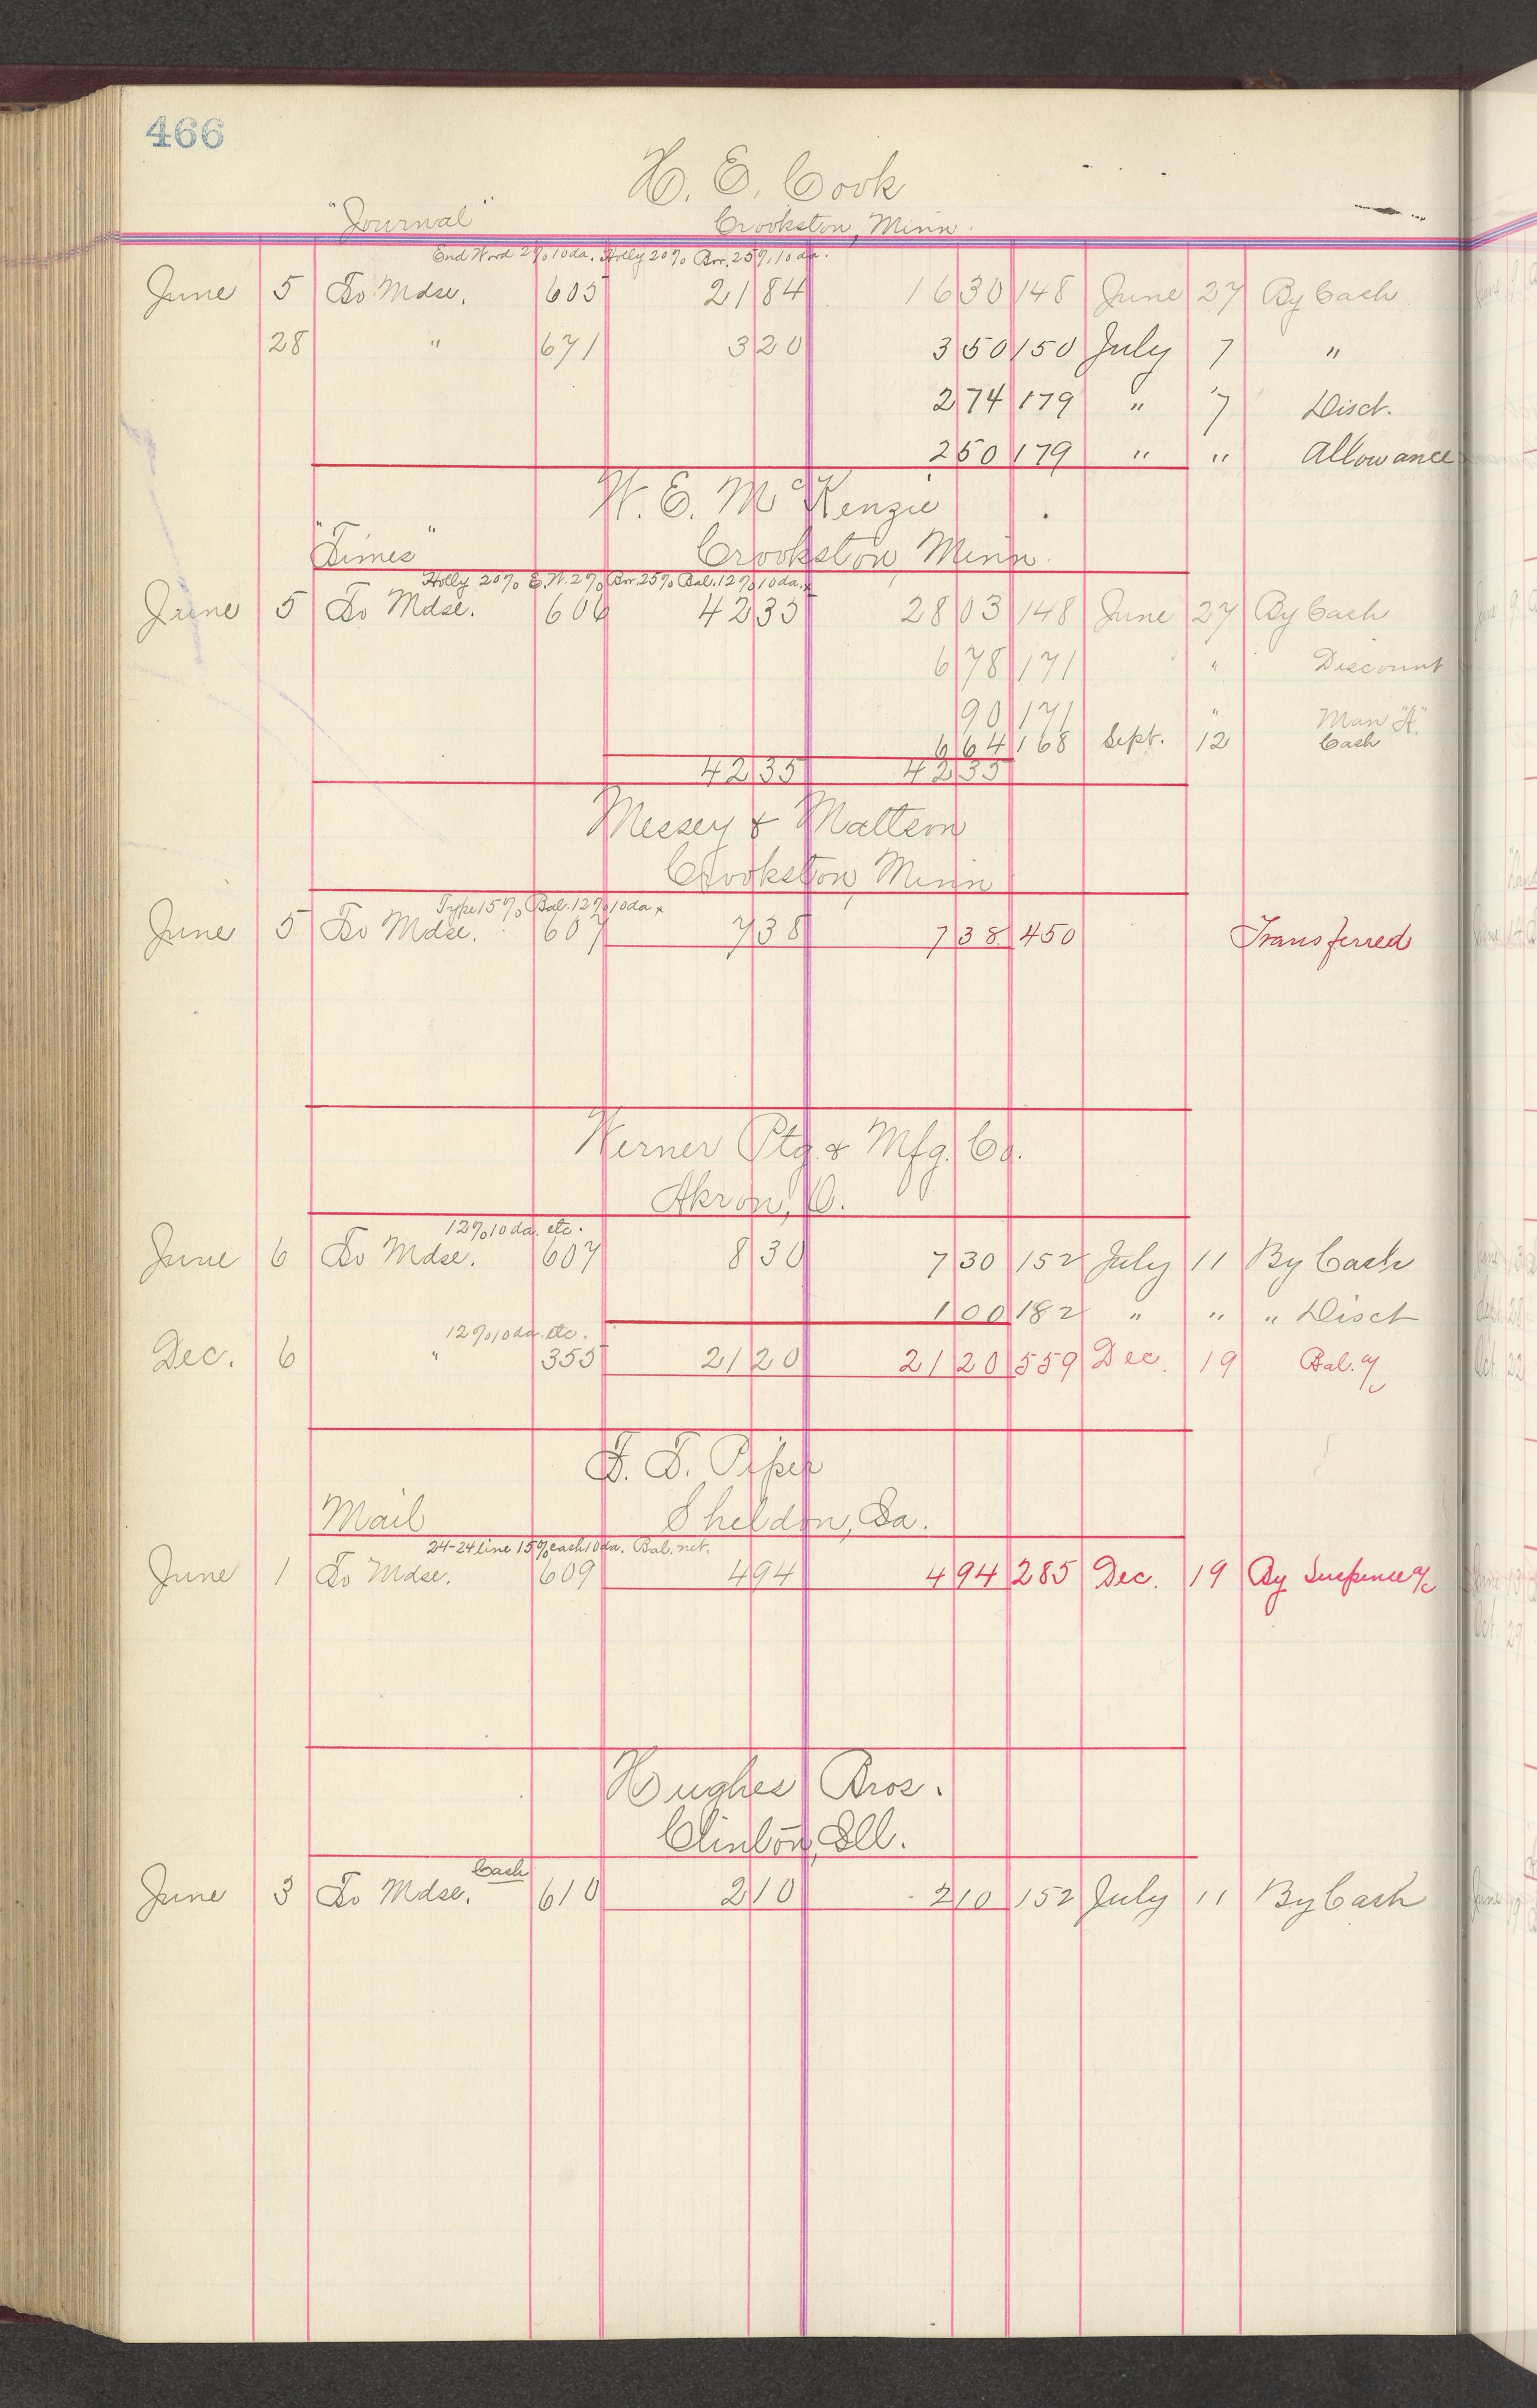 466
H. E. Cook
"Journal" Crookston, Minn.
End Wood 2% 10 da. Holly 20% Bor. 25% 10 da.
June 5 To Mdse. 605 21 84 16 30 148 June 27 By Cash
28 " 671 3 20 3 50 150 July 7 "
2 74 179 " 7 Disct.
2 50 179 " " Allowance
W. E. McKenzie
"Times" Crookston Minn.
Holly 20% E.W. 2% Bor. 25% Bal. 12% 10 da.
June 5 To Mdse. 606 42 35 28 03 148 June 27 By Cash
6 78 171 " Discount
90 171 " Man "A"
6 64 168 Sept. 12 Cash
42 35 42 35
Messey & Mattern
Crookston, Minn
Type 15% Bal. 12% 10 da.
June 5 To Mdse. 607 7 38 7 38 450 Transferred
Werner Ptg. & Mfg. Co.
Akron, O.
12% 10 da. etc.
June 6 To Mdse. 607 8 30 7 30 152 July 11 By Cash
1 00 182 " " " Disct
12% 10 da. etc.
Dec. 6 " 355 21 20 21 20 559 Dec. 19 Bal. a/c
Mail Sheldon, Ia.
24-24 line 15% each 10 da. Bal. net.
June 1 To Mdse. 609 4 94 4 94 285 Dec. 19 By Suspense a/c
Hughes Bros.
Clinton, Ill.
Cash
June 3 To Mdse. 610 2 10 2 10 152 July 11 By Cash